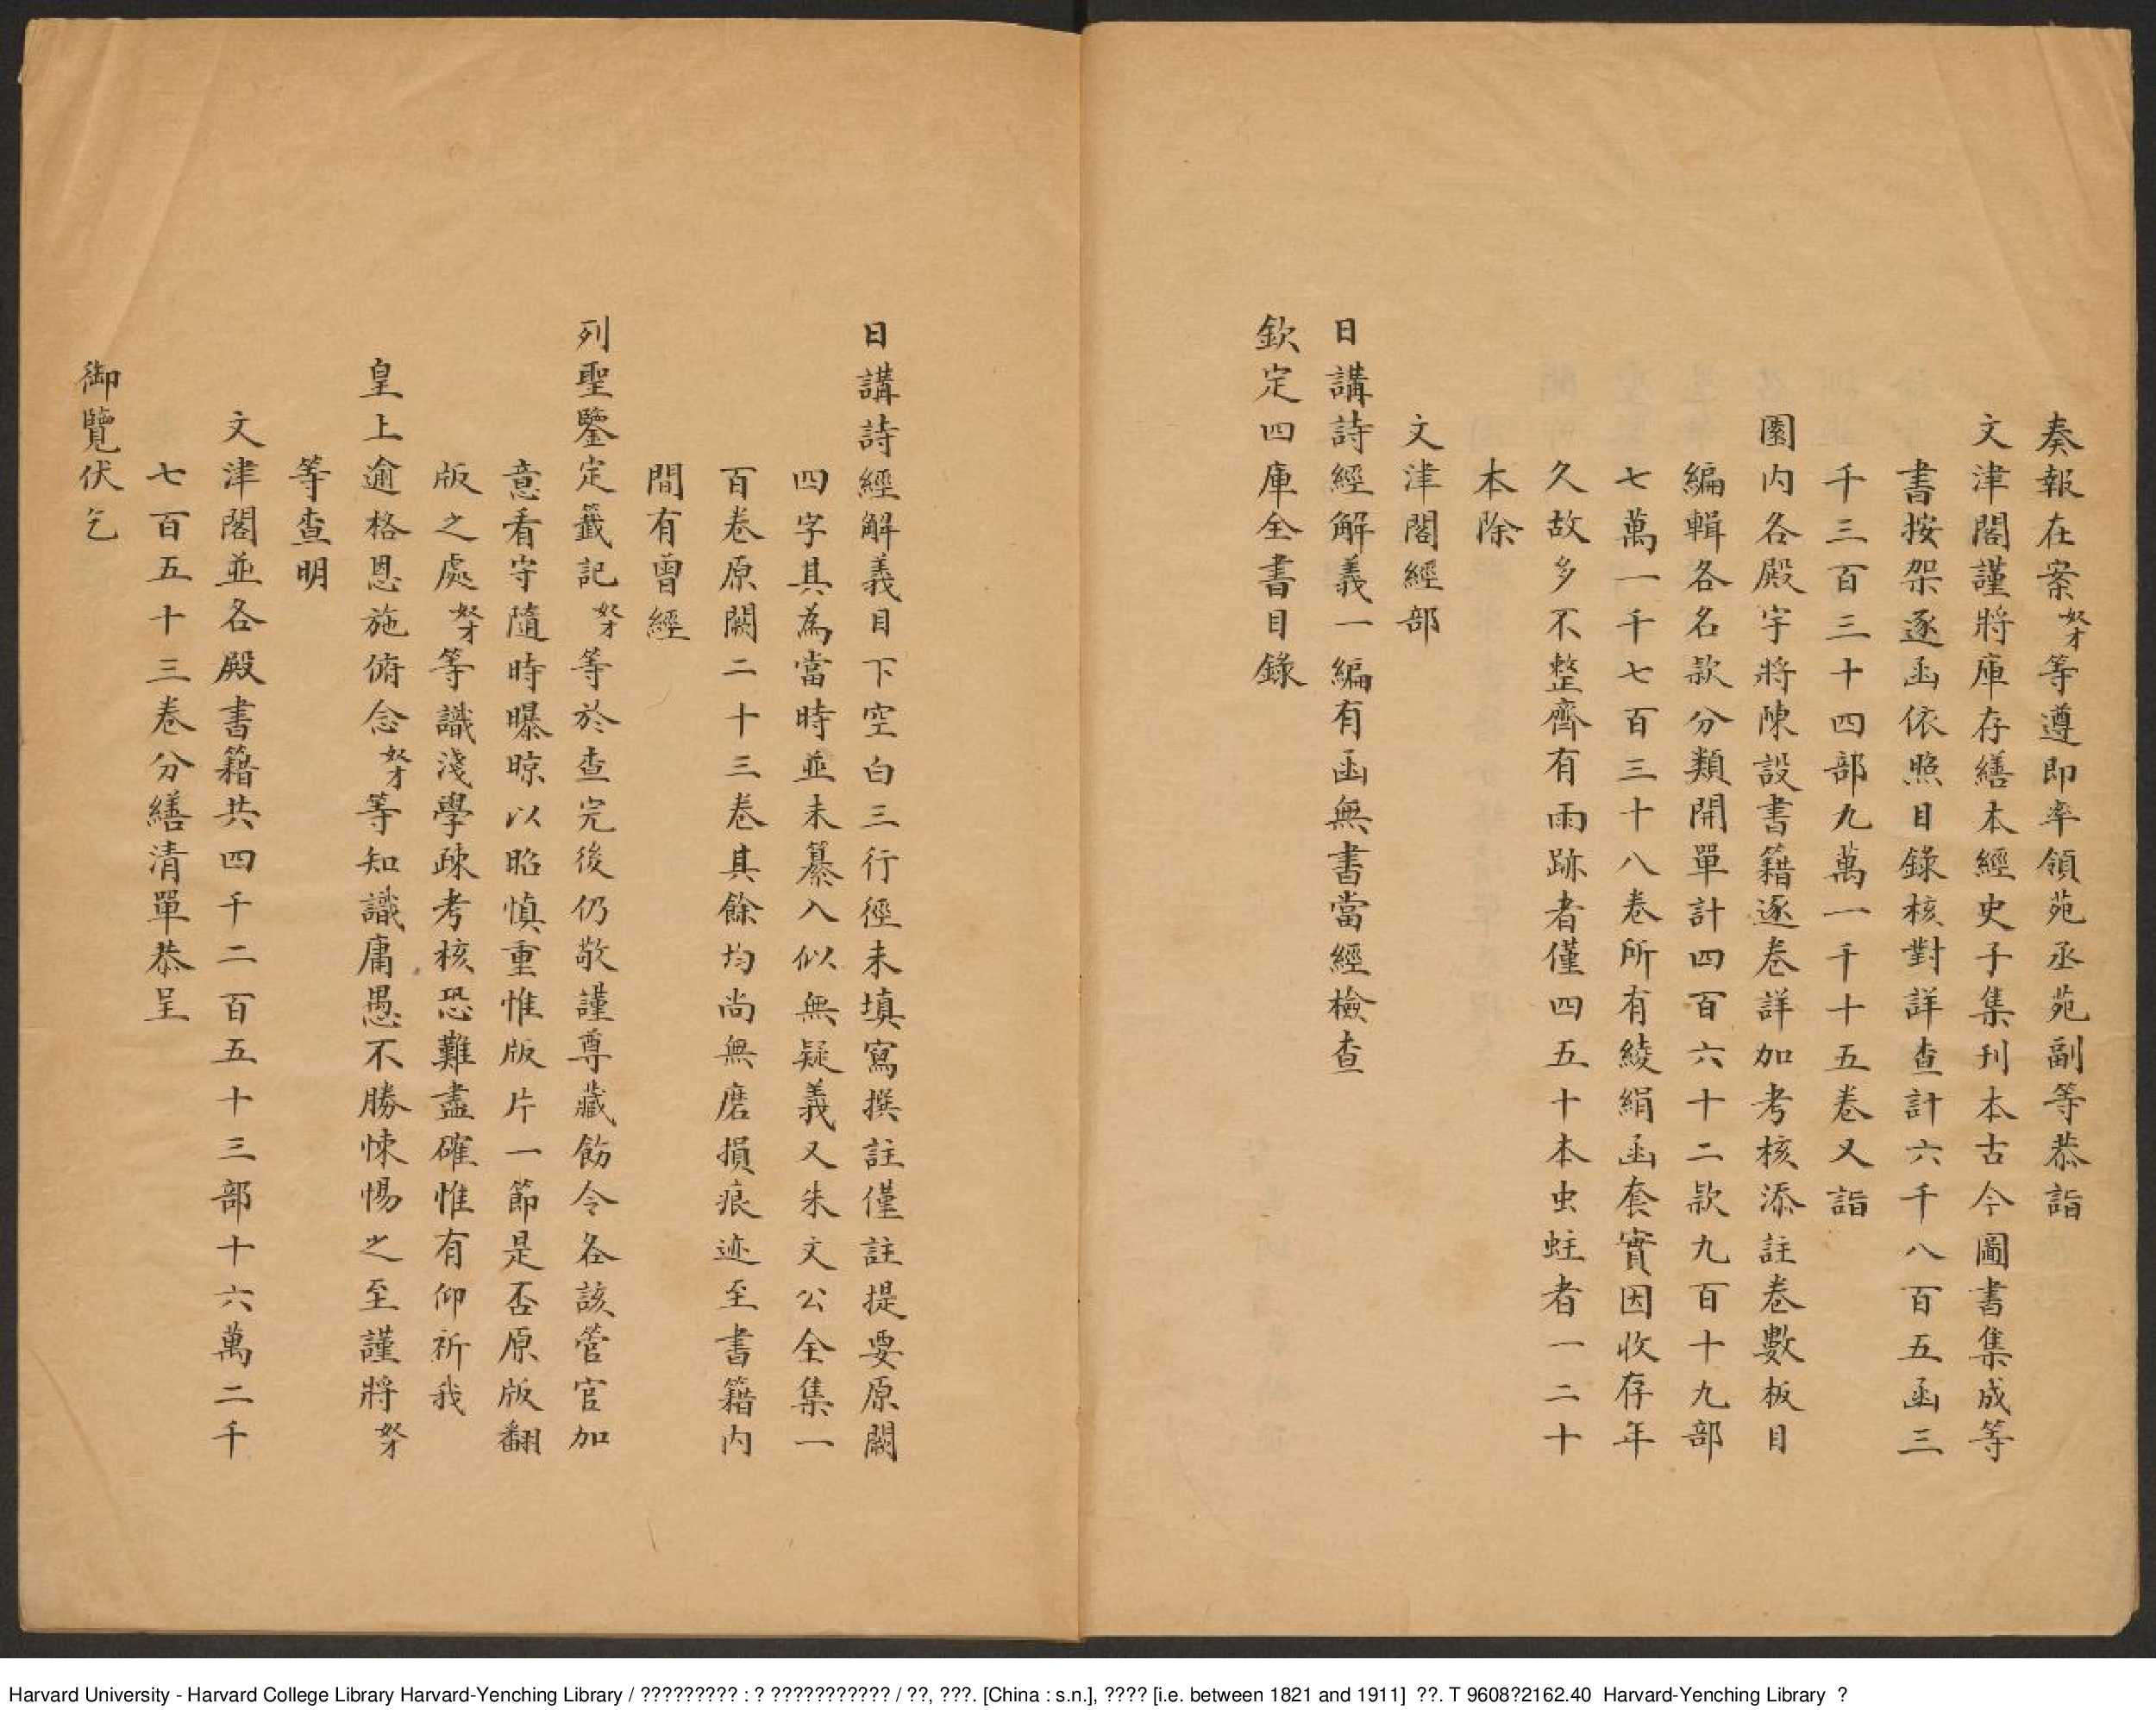 奏報在案奴才等遵即率領苑丞苑副等恭詣
文津閣謹將庫存繕本經史子集刊本古今圖書集成等
書按架逐函依照目錄核對詳查計六千八百五函三
千三百三十四部九萬一千十五卷又詣
園内各殿宇將陳設書籍逐卷詳加考核添註卷數板目
編輯各名款分類開單計四百六十二款九百十九部
七萬一千七百三十八卷所有綾絹函套實因收存年
久故多不整齊有雨跡者僅四五十本虫蛀者一二十
本除
文津閣經部
日講詩經解義一編有函無書當經檢查
欽定四庫全書目錄
日講詩經解義目下空白三行徑未填寫撰註僅註提要原闕
四字其為當時並未纂入似無疑義又朱文公全集一
百卷原闕二十三卷其餘均尚無磨損痕迹至書籍内
間有曾經
列聖鑒定籤記奴才等於查完後仍敬謹尊藏飭令各該管官加
意看守隨時曝晾以昭慎重惟版片一節是否原版翻
版之處奴才等識淺學疎考核恐難盡確惟有仰祈我
皇上逾格恩施俯念奴才等知識庸愚不勝悚惕之至謹將奴才
等查明
文津閣並各殿書籍共四千二百五十三部十六萬二千
七百五十三卷分繕清單恭呈
御覽伏乞
Harvard University - Harvard College Library Harvard-Yenching Library / ????????? : ? ??????????? / ??, ???. [China : s.n.], ???? [i.e. between 1821 and 1911] ??. T 9608?2162.40 Harvard-Yenching Library ?